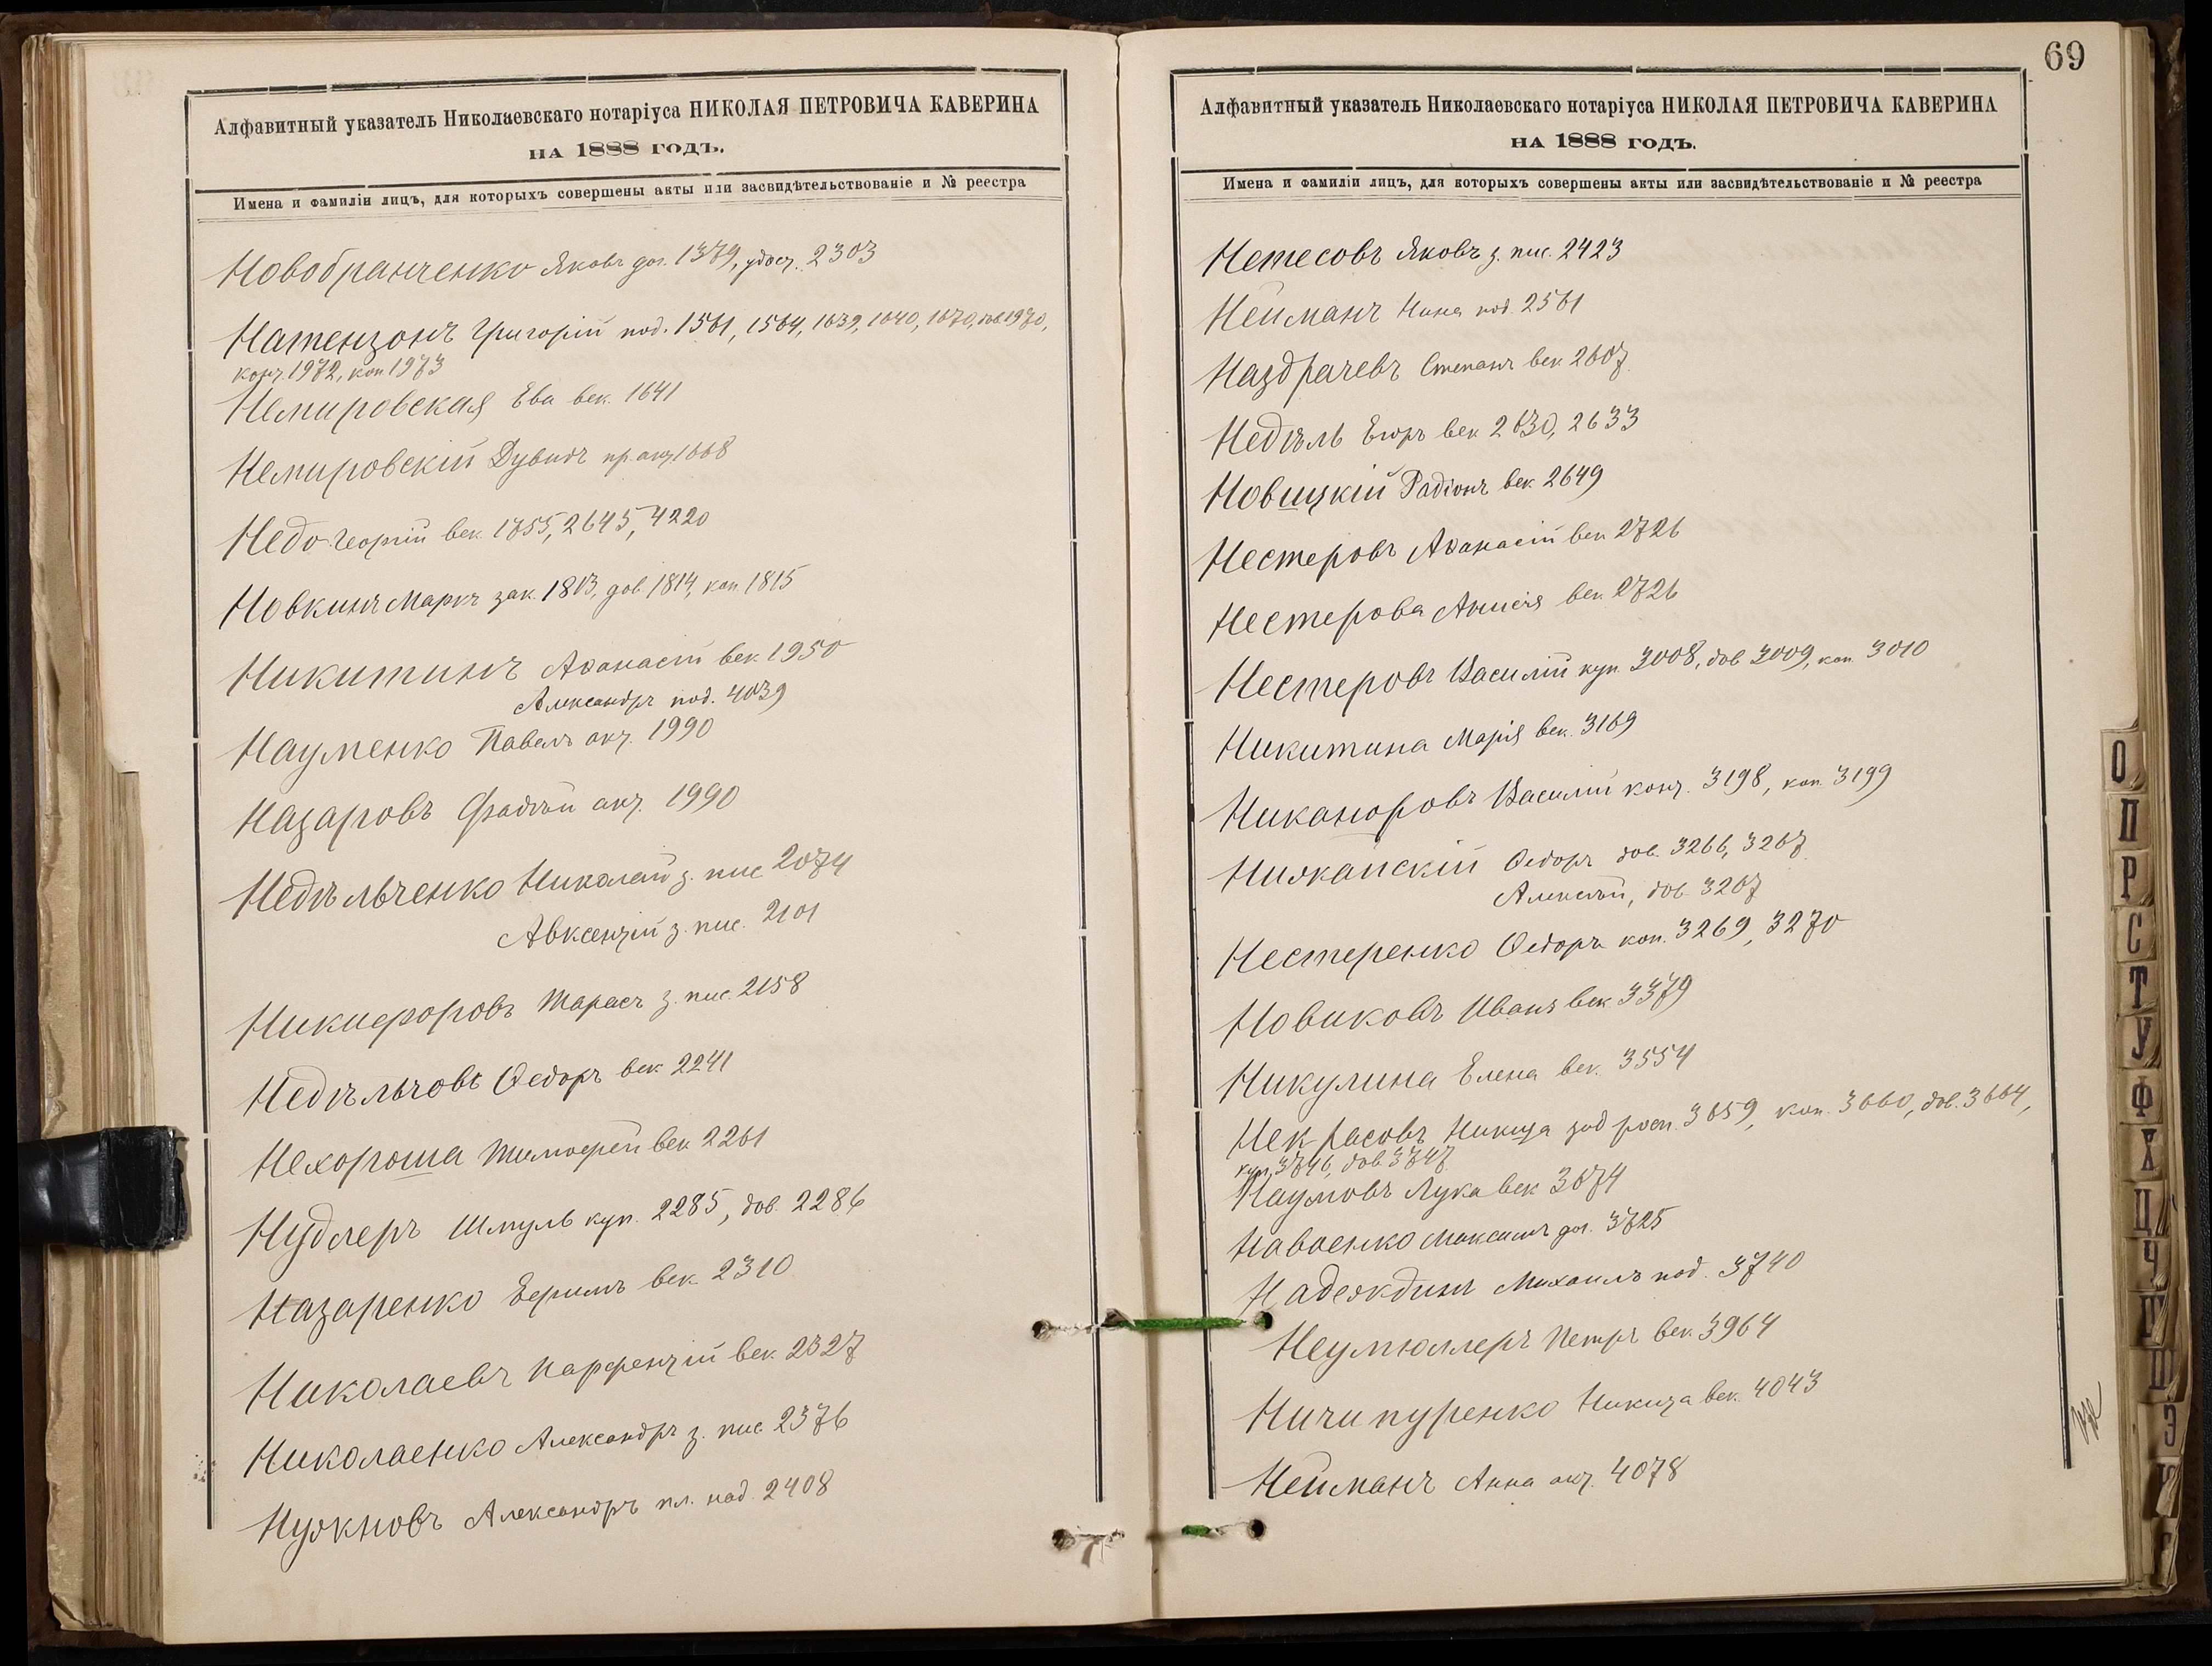 Алфавитный указатель Николаевскаго нотаріуса НИКОЛАЯ ПЕТРОВИЧА КАВЕРИНА
НА 1888 ГОДЪ.
Имена и фамиліи лицъ, для которыхъ совершены акты или засвидѣтельствованіе и № реестра
Новобранченко Яковъ дог. 1379, удост. 2303
Натензонъ Григорій под. 1561, 1564, 1639, 1640, 1670, 1970,
конт. 1972, коп 1973
Немировская Ева век. 1641
Немировскій Дувидъ 1668
Недо Георгій век. 1755, 2645, 4220
Новкинъ Маркъ зак. 1813, дов. 1814, коп. 1815
Никитинъ Аѳанасій век. 1950
Александръ под. 4039
Науменко Павелъ акт. 1990
Назаровъ Фадѣй акт. 1990
Недѣльченко Николай з. пис 2074
Авксентій з. пис. 2101
Никифоровъ Тарасъ з. пис. 2158
Недѣльчовъ Ѳедоръ век 2241
Нехороша Тимофей век 2261
Нудлеръ Шмуль куп. 2285, дов. 2286
Назаренко Ефимъ век 2310
Николаевъ Парфентій век. 2327
Николаенко Александръ з. пис 2376
Нужновъ Александръ пл. над. 2408
69
Алфавитный указатель Николаевскаго нотаріуса НИКОЛАЯ ПЕТРОВИЧА КАВЕРИНА
НА 1888 ГОДЪ.
Имена и фамиліи лицъ, для которыхъ совершены акты или засвидѣтельствованіе и № реестра
Нетесовъ Яковъ з. пис. 2423
Нейманъ Нина под. 2561
Наздрачевъ Степанъ век 2607
Недѣль Егоръ век 2630, 2633
Новицкій Радіонъ век. 2649
Нестеровъ Аѳанасій век 2726
Нестерова Анисія век. 2726
Нестеровъ Василій куп. 3008, дов 3009, коп 3010
Никитина Марія век. 3169
Никаноровъ Василій конт. 3198, коп. 3199
Ѳедоръ дов. 3266, 3267
Алексѣй, дов. 3267
Нестеренко Ѳедоръ коп. 3269, 3270
Новиковъ Иванъ век 3379
Никулина Елена век. 3554
Некрасовъ Никита зад росп. 3659, коп. 3660, дов. 3664,
куп. 3746, дов 3747
Наумовъ Лука век 3674
Наваенко Максимъ дог. 3725
Надеждинъ Михаилъ под. 3740
Неумюллеръ Петръ век. 3964
Ничипуренко Никита век. 4043
Нейманъ Анна акт. 4078
О
П
Р
С
Т
У
Ф
Х
Ц
Ч
Ш
Щ
Э